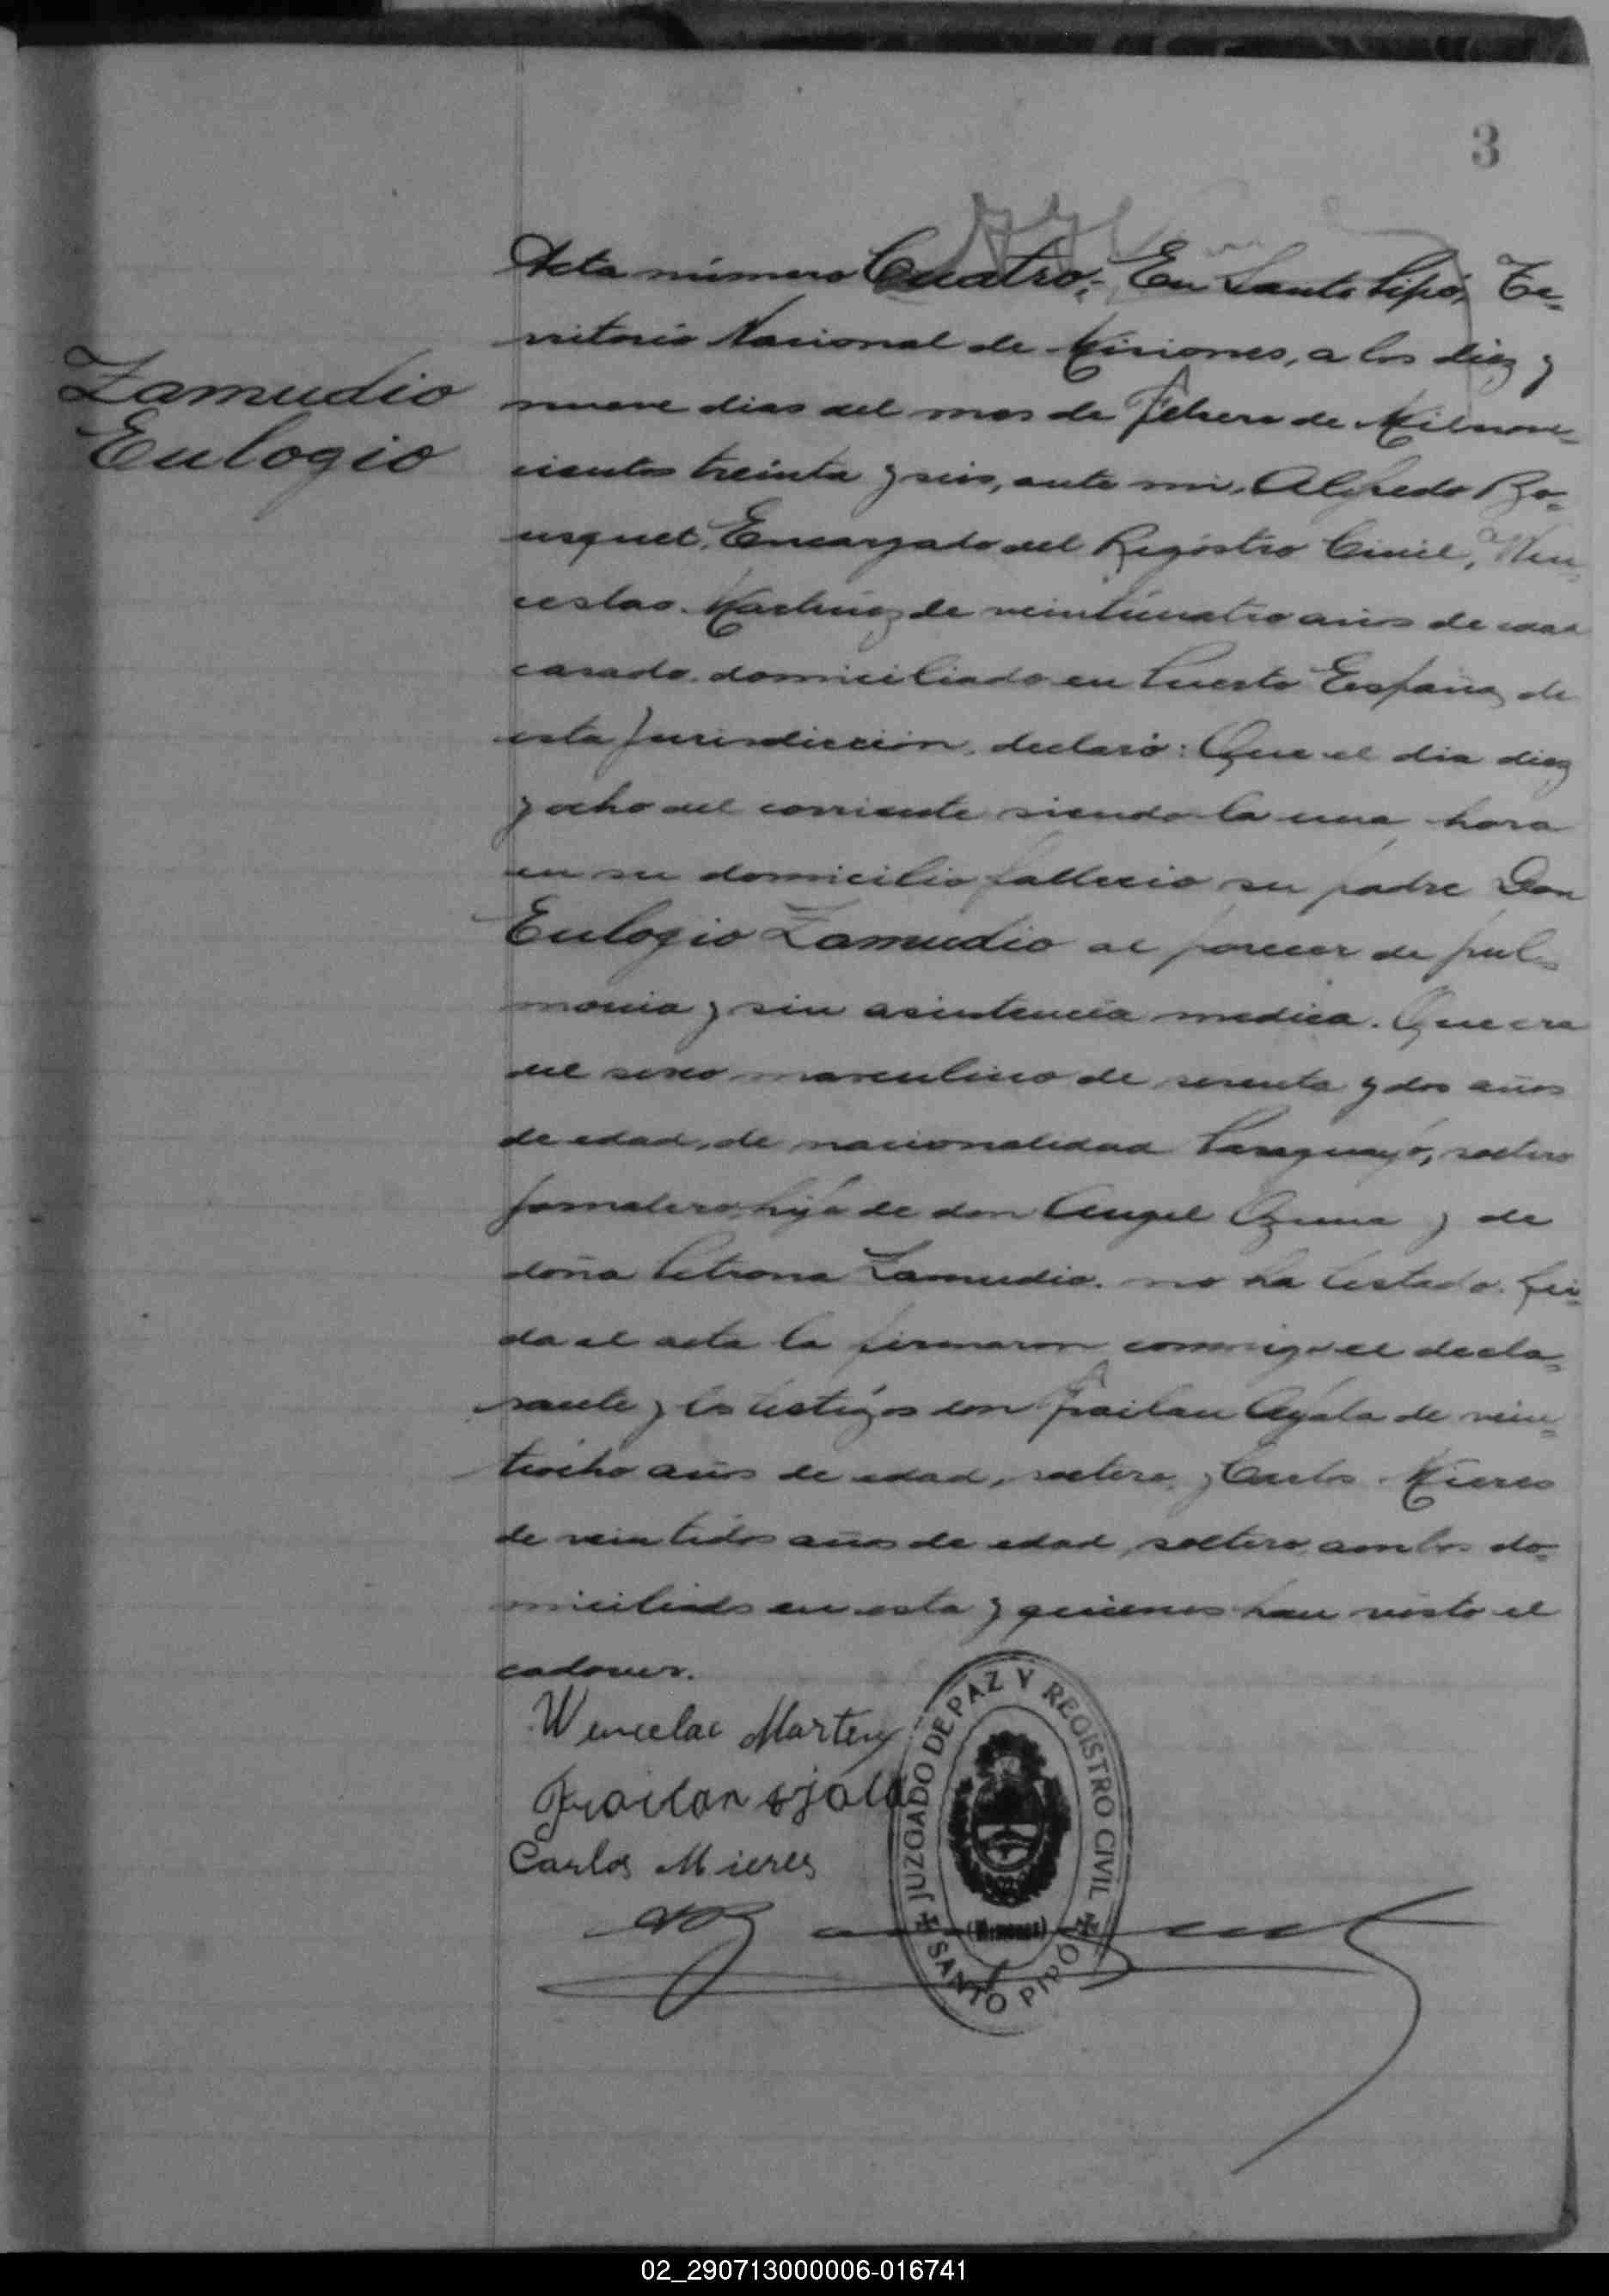 3
Zamudio
Eulogio
Acta número Cuatro,- En Santo Pipó, Te-
rritorio Nacional de Misiones, a los diez y
nueve dias del mes de Febrero de Milnove-
cientos treinta y seis, ante mi, Alfredo Bo-
usquet, Encargado del Registro Civil, a Wen-
ceslao Martinez de veinticuatro años de edad
casado domiciliado en Puerto España, de
esta jurisdicción, declaró: Que el dia diez
y ocho del corriente siendo la una hora
en su domicilio fallecio su padre Don
Eulogio Zamudio al parecer de pul-
monia y sin asistencia medica. Que era
del sexo masculino de sesenta y dos años
de edad, de nacionalidad Paraguayo, soltero
jornalero, hijo de don Angel y de
doña Petrona Zamudio. no ha testado. Lei-
da el acta la firmaron conmigo el decla-
rante y los testigos don Froilan Ayala de vein-
tiocho años de edad, soltero, y Carlos Mieres
de veintidos años de edad, soltero, ambos do-
miciliados en esta y quienes han visto el
cadaver.
Wencelac Martinez
Froilan ajala
Carlos Mieres
JUZGADO DE PAZ Y REGISTRO CIVIL
(Misiones)
SANTO PIPÓ
02_290713000006-016741